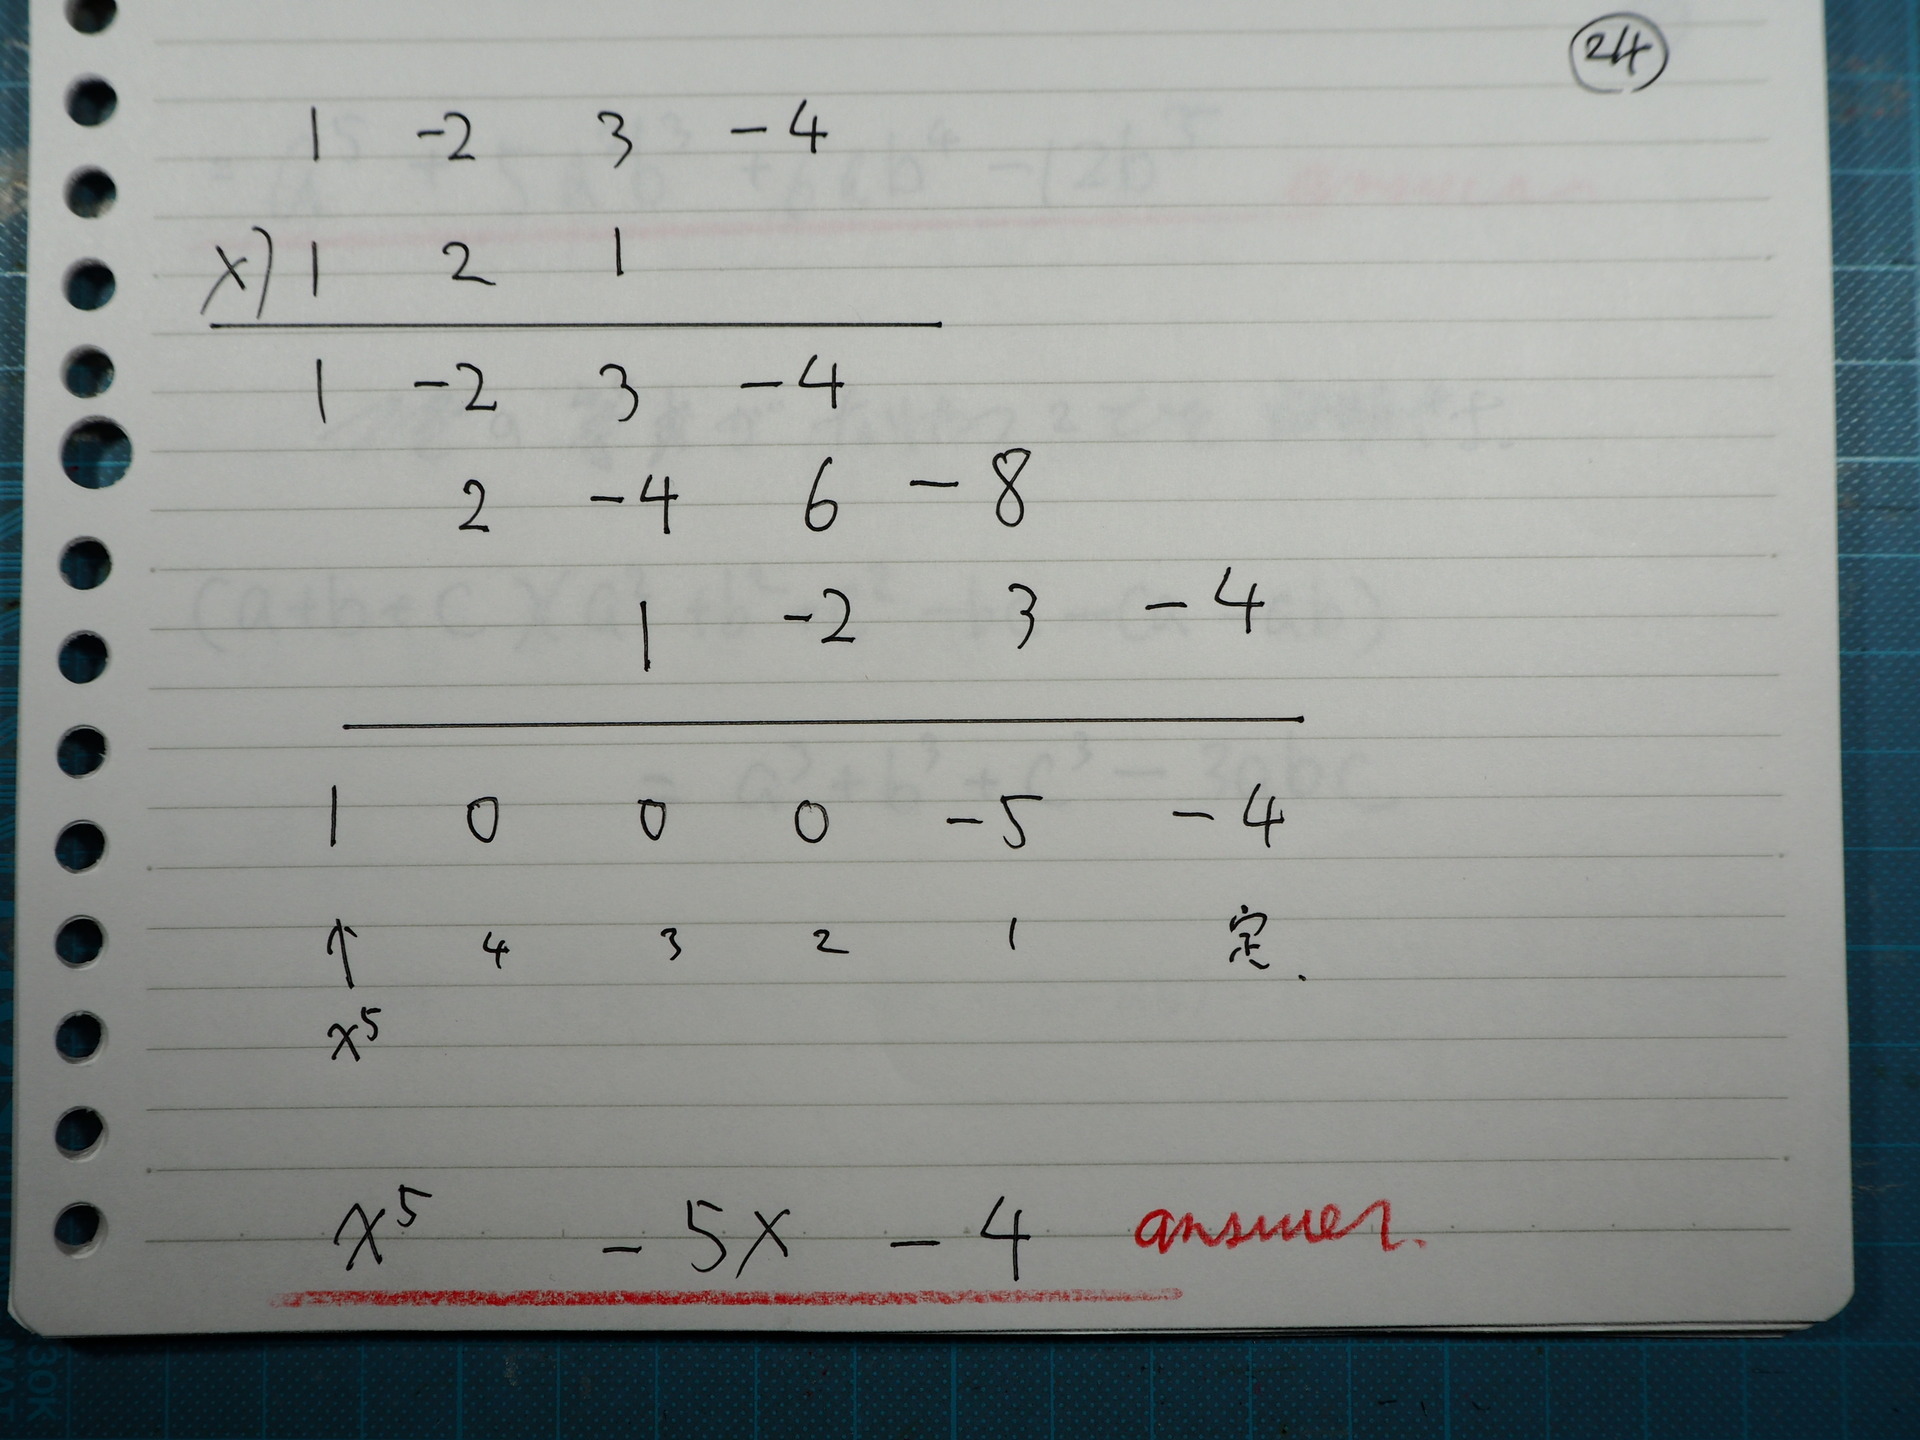 24
1 -2 3 -4
×) 1 2 1
1 -2 3 -4
2 -4 6 -8
1 -2 3 -4
1 0 0 0 -5 -4
↑ 4 3 2 1 定.
x⁵
x⁵ - 5x - 4 answer.